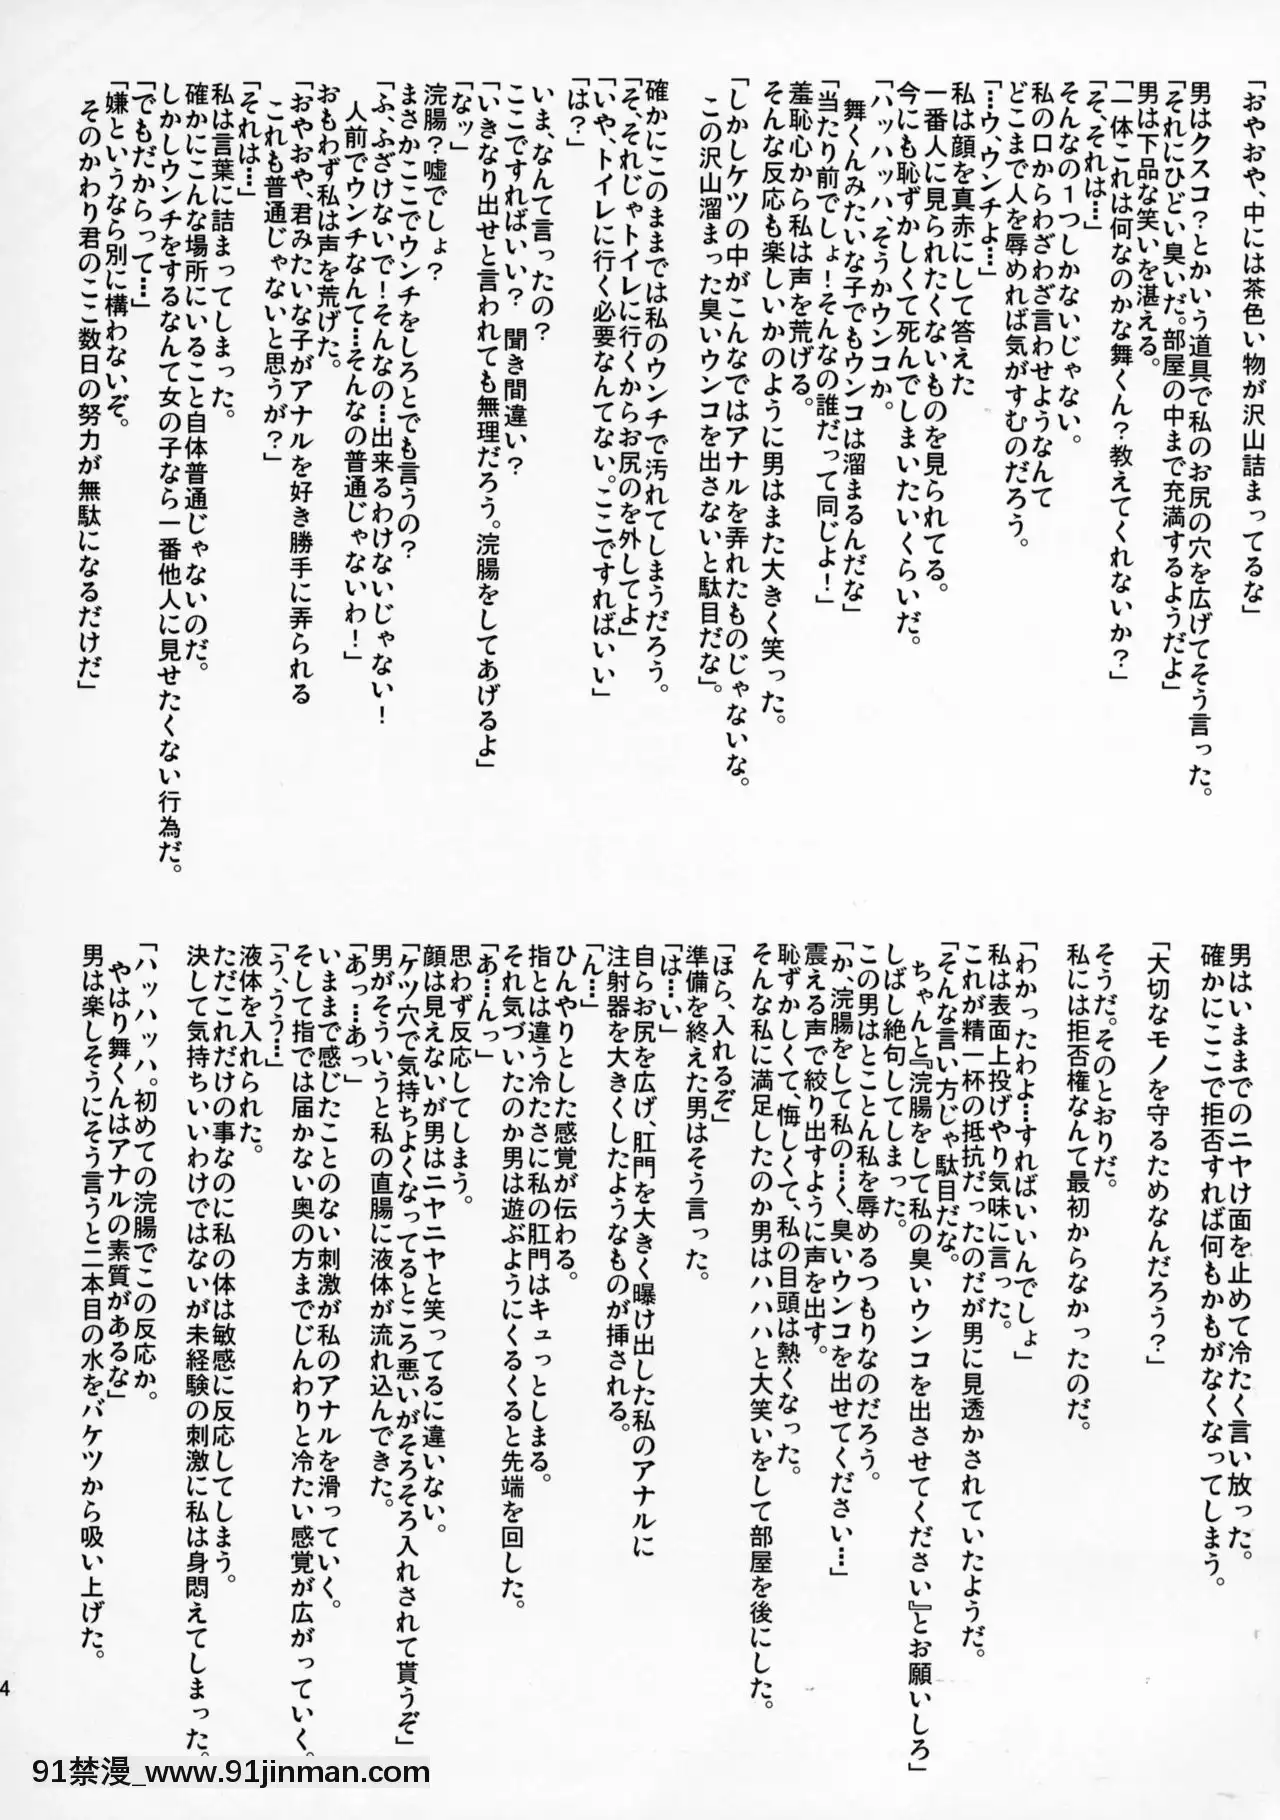 「おやおや、中には茶色い物が沢山詰まってるな」
男はクスコ？とかいう道具で私のお尻の穴を広げてそう言った。
「それにひどい臭いだ。部屋の中まで充満するようだよ」
男は下品な笑いを湛える。
「一体これは何なのかな舞くん？教えてくれないか？」
「そ、それは…」
そんなの１つしかないじゃない。
私の口からわざわざ言わせようなんて
どこまで人を辱めれば気がすむのだろう。
「…ウ、ウンチよ…」
私は顔を真赤にして答えた
一番人に見られたくないものを見られてる。
今にも恥ずかしくて死んでしまいたいくらいだ。
「ハッハッハ、そうかウンコか。
舞くんみたいな子でもウンコは溜まるんだな」
「当たり前でしょ！そんなの誰だって同じよ！」
羞恥心から私は声を荒げる。
そんな反応も楽しいかのように男はまた大きく笑った。
「しかしケツの中がこんなではアナルを弄れたものじゃないな。
この沢山溜まった臭いウンコを出さないと駄目だな」。
確かにこのままでは私のウンチで汚れてしまうだろう。
「そ、それじゃトイレに行くからお尻のを外してよ」
「いや、トイレに行く必要なんてない。ここですればいい」
「は？」
いま、なんて言ったの？
ここですればいい？　聞き間違い？
「いきなり出せと言われても無理だろう。浣腸をしてあげるよ」
「なッ」
浣腸？嘘でしょ？
まさかここでウンチをしろとでも言うの？
「ふ、ふざけないで！そんなの…出来るわけないじゃない！
人前でウンチなんて…そんなの普通じゃないわ！」
おもわず私は声を荒げた。
「おやおや、君みたいな子がアナルを好き勝手に弄られる
これも普通じゃないと思うが？」
「それは…」
私は言葉に詰まってしまった。
確かにこんな場所にいること自体普通じゃないのだ。
しかしウンチをするなんて女の子なら一番他人に見せたくない行為だ。
「でもだからって…」
「嫌というなら別に構わないぞ。
そのかわり君のここ数日の努力が無駄になるだけだ」
男はいままでのニヤけ面を止めて冷たく言い放った。
確かにここで拒否すれば何もかもがなくなってしまう。
「大切なモノを守るためなんだろう？」
そうだ。そのとおりだ。
私には拒否権なんて最初からなかったのだ。
「わかったわよ…すればいいんでしょ」
私は表面上投げやり気味に言った。
これが精一杯の抵抗だったのだが男に見透かされていたようだ。
「そんな言い方じゃ駄目だな。
ちゃんと『浣腸をして私の臭いウンコを出させてください』とお願いしろ」
しばし絶句してしまった。
この男はとことん私を辱めるつもりなのだろう。
「か、浣腸をして私の…く、臭いウンコを出せてください…」
震える声で絞り出すように声を出す。
恥ずかしくて、悔しくて、私の目頭は熱くなった。
そんな私に満足したのか男はハハハと大笑いをして部屋を後にした。
「ほら、入れるぞ」
準備を終えた男はそう言った。
「は…い」
自らお尻を広げ、肛門を大きく曝け出した私のアナルに
注射器を大きくしたようなものが挿される。
「ん…」
ひんやりとした感覚が伝わる。
指とは違う冷たさに私の肛門はキュっとしまる。
それ気づいたのか男は遊ぶようにくるくると先端を回した。
「あ…んっ」
思わず反応してしまう。
顔は見えないが男はニヤニヤと笑ってるに違いない。
「ケツ穴で気持ちよくなってるところ悪いがそろそろ入れされて貰うぞ」
男がそういうと私の直腸に液体が流れ込んできた。
「あっ…あっ」
いままで感じたことのない刺激が私のアナルを滑っていく。
そして指では届かない奥の方までじんわりと冷たい感覚が広がっていく。
「う、うう…」
液体を入れられた。
ただこれだけの事なのに私の体は敏感に反応してしまう。
決して気持ちいいわけではないが未経験の刺激に私は身悶えてしまった。
「ハッハッハ。初めての浣腸でこの反応か。
やはり舞くんはアナルの素質があるな」
男は楽しそうにそう言うと二本目の水をバケツから吸い上げた。
4
91禁漫_www.91jinman.com